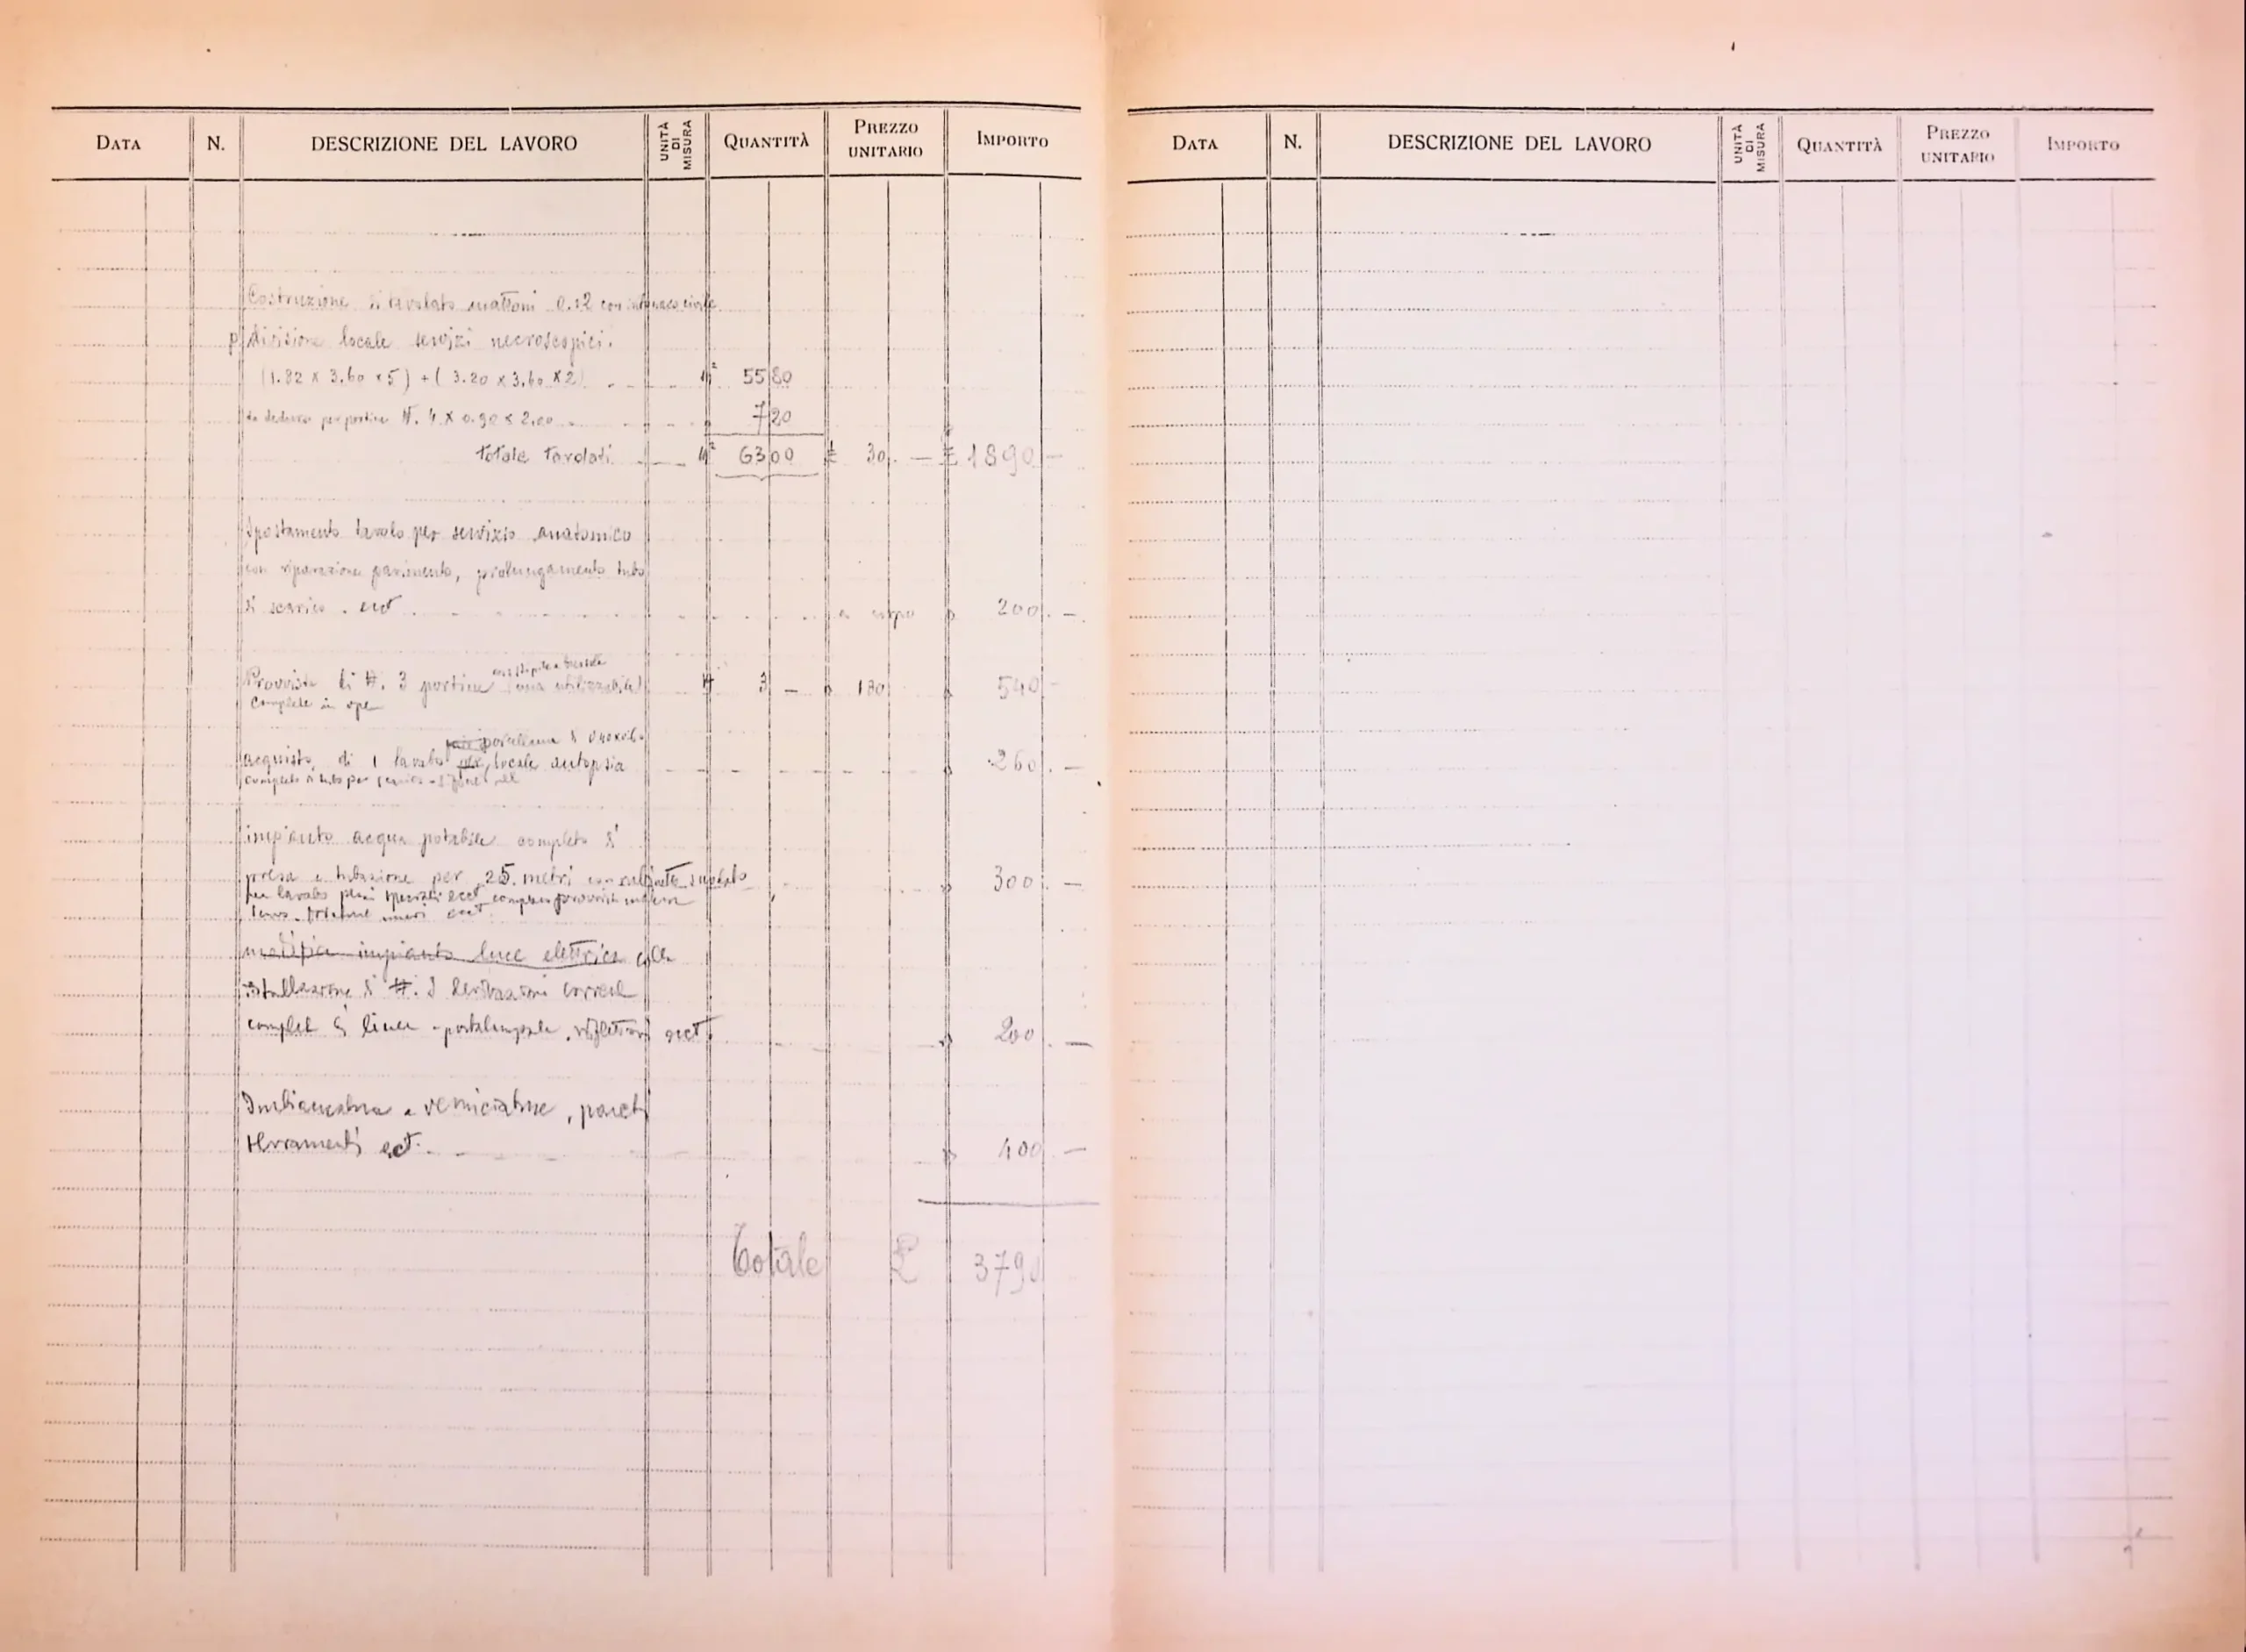 DATA N. DESCRIZIONE DEL LAVORO UNITÀ DI MISURA QUANTITÀ PREZZO UNITARIO IMPORTO
Costruzione di tavolato mattoni 0.12 con intonaco civile
p/ divisione locale servizi necroscopici.
(1.82 x 3.60 x 5) + ( 3.20 x 3.60 x 2) M² 55 80
da dedurre per portine N. 4 x 0.90 x 2.00 7 20
totale tavolati M² 63 00 £ 30. — £ 1890 —
Spostamento tavolo per servizio anatomico
con riparazione pavimento, prolungamento tubo
di scarico . ect a corpo » 200. —
Provvista di N. 3 portine (una utilizzabile) N 3 — » 180 » 540 —
complete in opera
porcellana
acquisto di 1 lavabo locale autopsia » 260. —
completo di tubo per scarico - sifone
impianto acqua potabile completo di
presa e tubazione per 25. metri con rubinetto » 300. —
per lavabo ecct
ecct
modifica impianto luce elettrica colla
istallazione di N. 3 derivazioni
complete di linea - portalampade . riflettori ecct » 200. —
Imbiancatura e verniciature, pareti
serramenti ect. » 400 —
Totale £ 3790
DATA N. DESCRIZIONE DEL LAVORO UNITÀ DI MISURA QUANTITÀ PREZZO UNITARIO IMPORTO